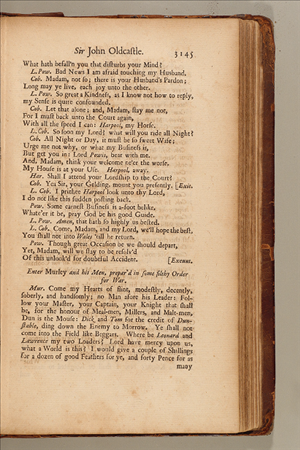 Sir John Oldcastle. 3145
What hath befall'n you that disturbs your Mind?
L. Pow. Bad News I am afraid touching my Husband.
Cob. Madam, not so; there is your Husband's Pardon;
Long may ye live, each joy unto the other.
L. Pow. So great a Kindness, as I know not how to reply,
my Sense is quite confounded.
Cob. Let that alone; and, Madam, stay me not,
For I must back unto the Court again,
With all the speed I can: Harpool, my Horse.
L. Cob. So soon my Lord? what will you ride all Night?
Cob. All Night or Day, it must be so sweet Wife;
Urge me not why, or what my Business is,
But get you in: Lord Powis, bear with me.
And, Madam, think your welcome ne'er the worse.
My House is at your Use. Harpool, away.
Har. Shall I attend your Lordship to the Court?
Cob. Yea Sir, your Gelding, mount you presently. [Exit.
L. Cob. I prithee Harpool look unto thy Lord,
I do not like this sudden posting back.
Pow. Some earnest Business is a-foot belike,
Whate'er it be, pray God be his good Guide.
L. Pow. Amen, that hath so highly us bested.
L. Cob. Come, Madam, and my Lord, we'll hope the best,
You shall not into Wales 'till he return.
Pow. Though great Occasion be we should depart,
Yet, Madam, will we stay to be resolv'd
Of this unlook'd for doubtful Accident. [Exeunt.
Enter Murley and his Men, prepar'd in some filthy Order
for War.
Mur. Come my Hearts of flint, modestly, decently,
soberly, and handsomly; no Man afore his Leader: Fol-
low your Master, your Captain, your Knight that shall
be, for the honour of Meal-men, Millers, and Malt-men,
Dun is the Mouse: Dick and Tom for the credit of Dun-
stable, ding down the Enemy to Morrow. Ye shall not
come into the Field like Beggars. Where be Leonard and
Lawrence my two Loaders? Lord have mercy upon us,
what a World is this? I would give a couple of Shillings
for a dozen of good Feathers for ye, and forty Pence for as
many